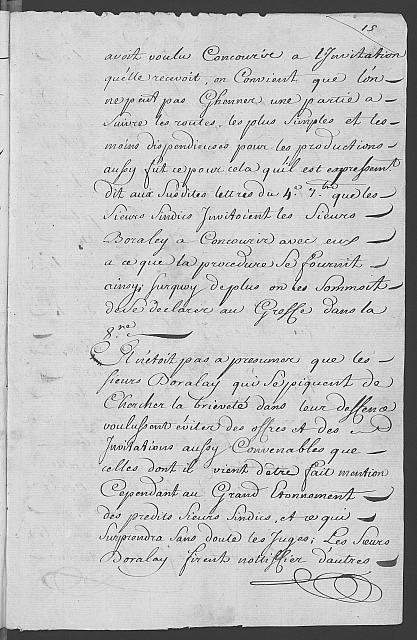 15
avoit voulu Concourir a l'Invitation
quelle recevoit, on Convient que l'on
ne peut pas Ghenner une partie a
suivre les routes, les plus simples et les
moins dispendieuses pour les productions
aussy fut ce pour cela qu'il est expressem.t
dit aux susdites lettres du 4.e 7.bre que les
Sieurs Sindics Invitoient les Sieurs
Boralay a Concourir avec eux
a ce que la procedure se fournit
ainsy; surquoy de plus on les sommoit
de se declarer au Greffe dans la
8.ne
Il n'etoit pas a presumer que les
sieurs Boralay qui se piquent de
Chercher la brieveté dans leur deffence
voulussent eviter des offres et des
Invitations aussy Convenables que
celles dont il vient d'être fait mention
Cependant au Grand Etonnement
des predits Sieurs Sindics, et ce qui
surprendra sans doute les Juges; Les Sieurs
Boralay firent nottiffier d'autres